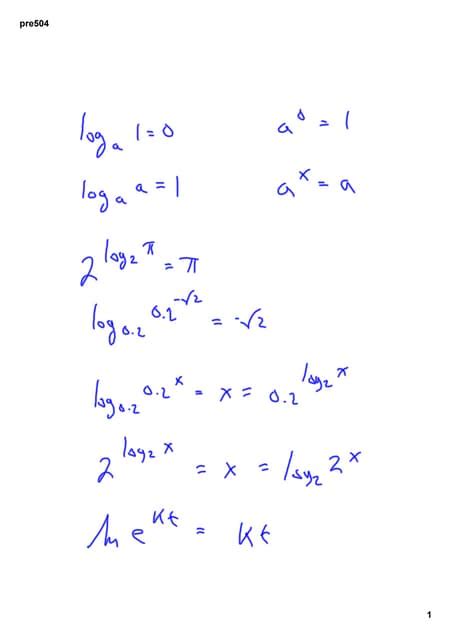 pre504
logₐ 1 = 0    a⁰ = 1
logₐ a = 1    aˣ = a
2^(log₂ π) = π
log₀.₂ 0.2^(-√2) = -√2
log₀.₂ 0.2ˣ = x = 0.2^(log₂ x)
2^(log₂ x) = x = log₂ 2ˣ
ln e^(kt) = kt
1